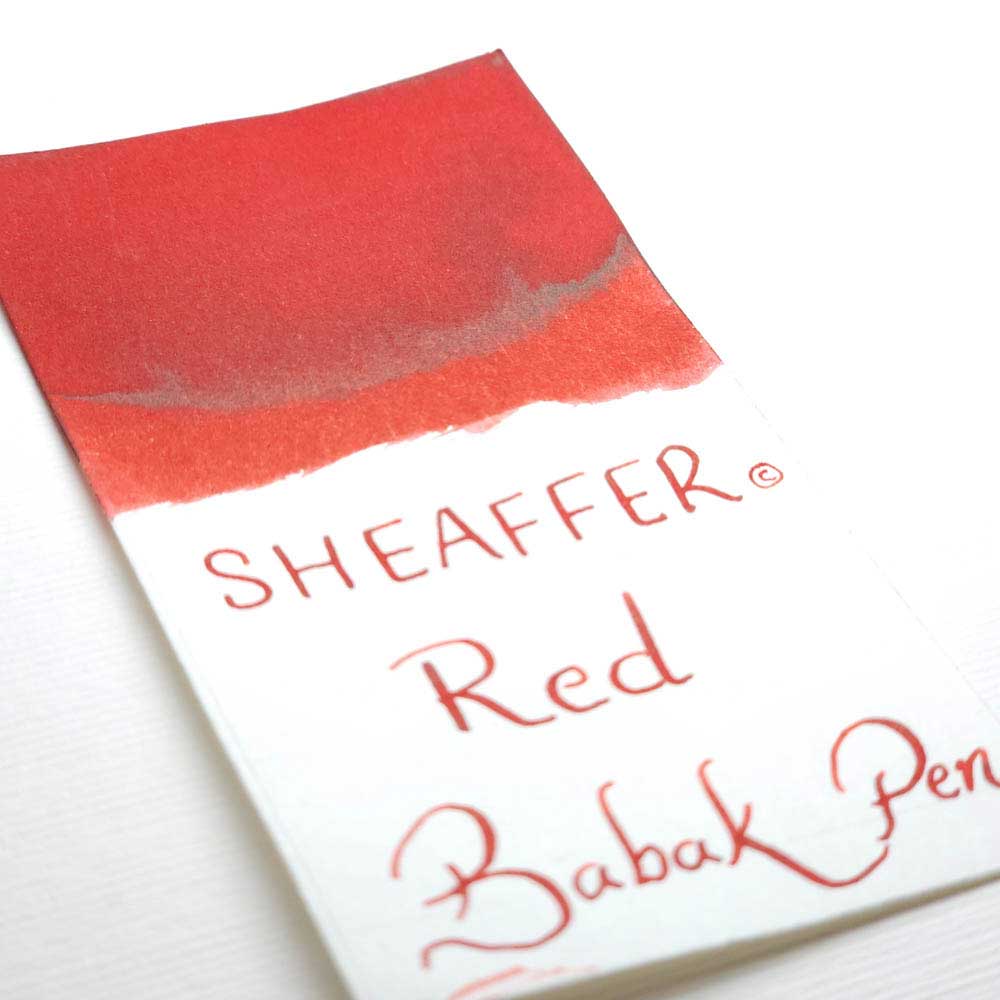 SHEAFFER ©
Red
Babak Pen